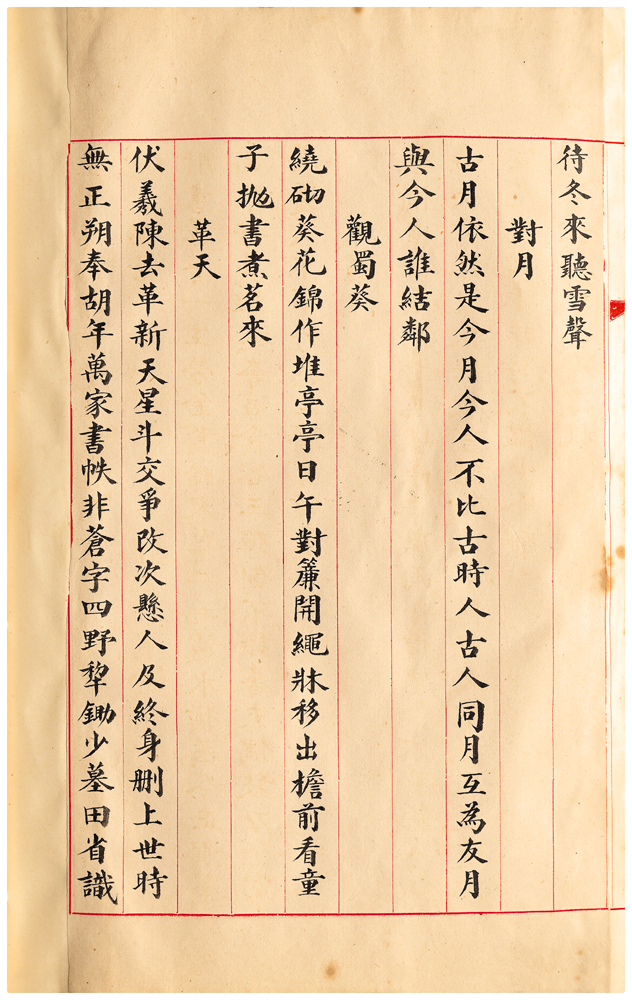 待冬來聽雪聲
對月
古月依然是今月今人不比古時人古人同月互為友月
與今人誰結鄰
觀蜀葵
繞砌葵花錦作堆亭亭日午對簾開繩牀移出檐前看童
子拋書煮茗來
革天
伏羲陳去革新天星斗交爭改次懸人及終身刪上世時
無正朔奉胡年萬家書帙非蒼字四野犂鋤少墓田省識